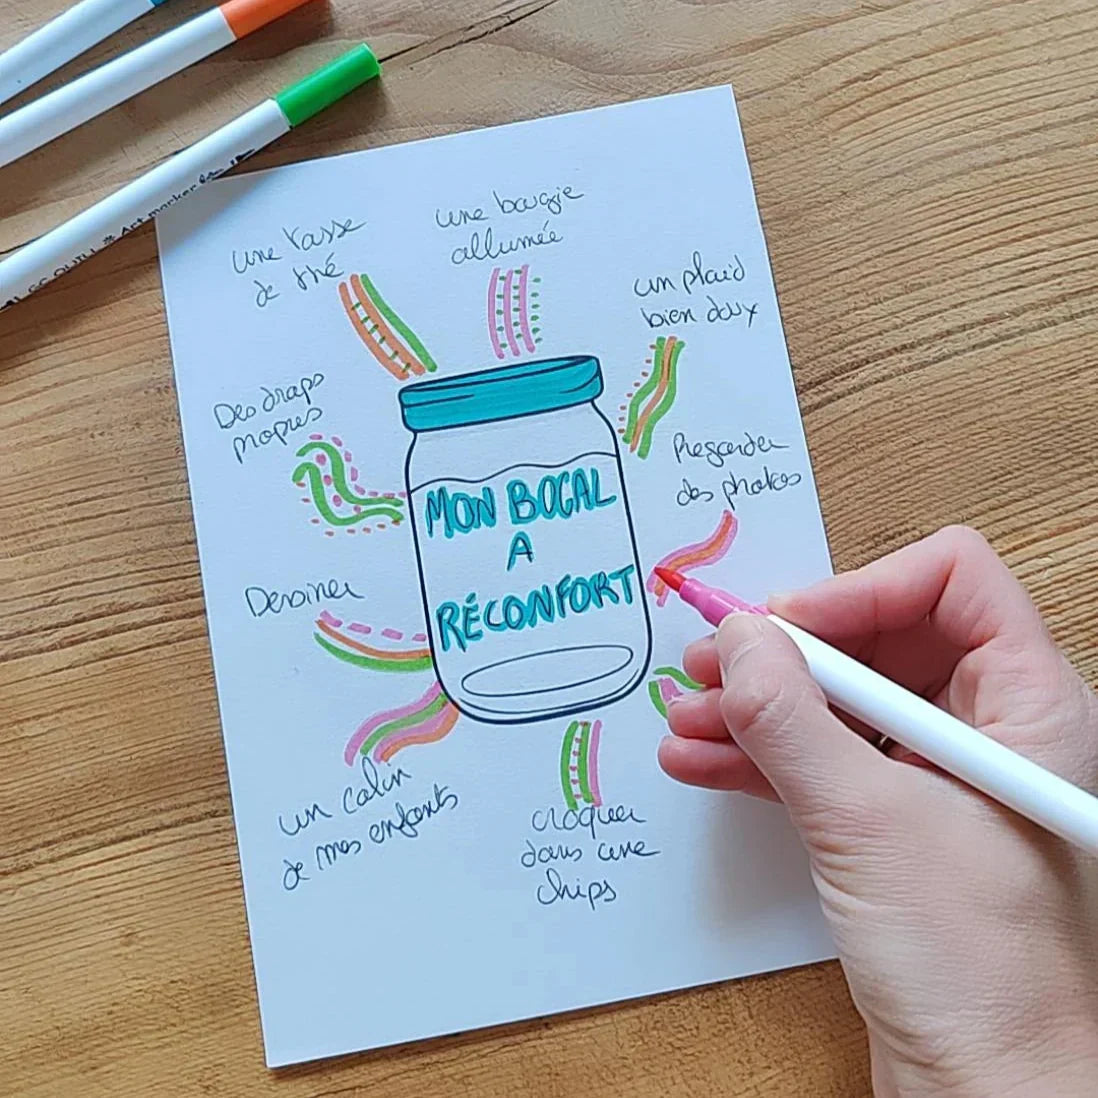 Art marker
une tasse
de thé
une bougie
allumée
un plaid
bien doux
Des draps
propres
Regarder
des photos
MON BOCAL
A
RÉCONFORT
Dessiner
un calin
de mes enfants
croquer
dans une
chips